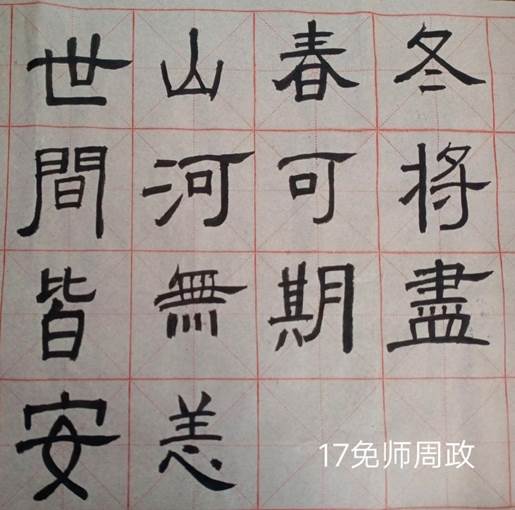 冬将盡
春可期
山河無恙
世間皆安
17免师周政